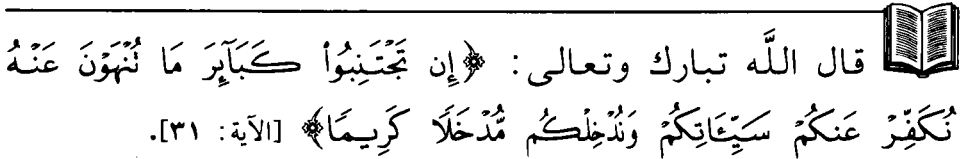 قال اللَّه تبارك وتعالى: ﴿إِن تَجْتَنِبُوا۟ كَبَآئِرَ مَا تُنْهَوْنَ عَنْهُ
نُكَفِّرْ عَنكُمْ سَيِّئَاتِكُمْ وَنُدْخِلْكُم مُّدْخَلًا كَرِيمًا﴾ [الآية: ٣١].